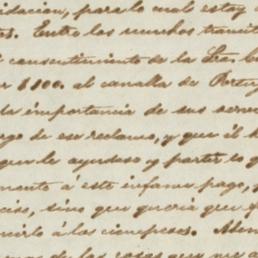 idacion, para lo cual estoy
es. Entre los muchos
l consentimiento de la Sra.
r $100. al canalla de
la importancia de sus
rgo de ese reclamo, y que él
que le ayudase y partir lo
mento á este infame pago,
cios, sino que queria que
á los
de las cosas que